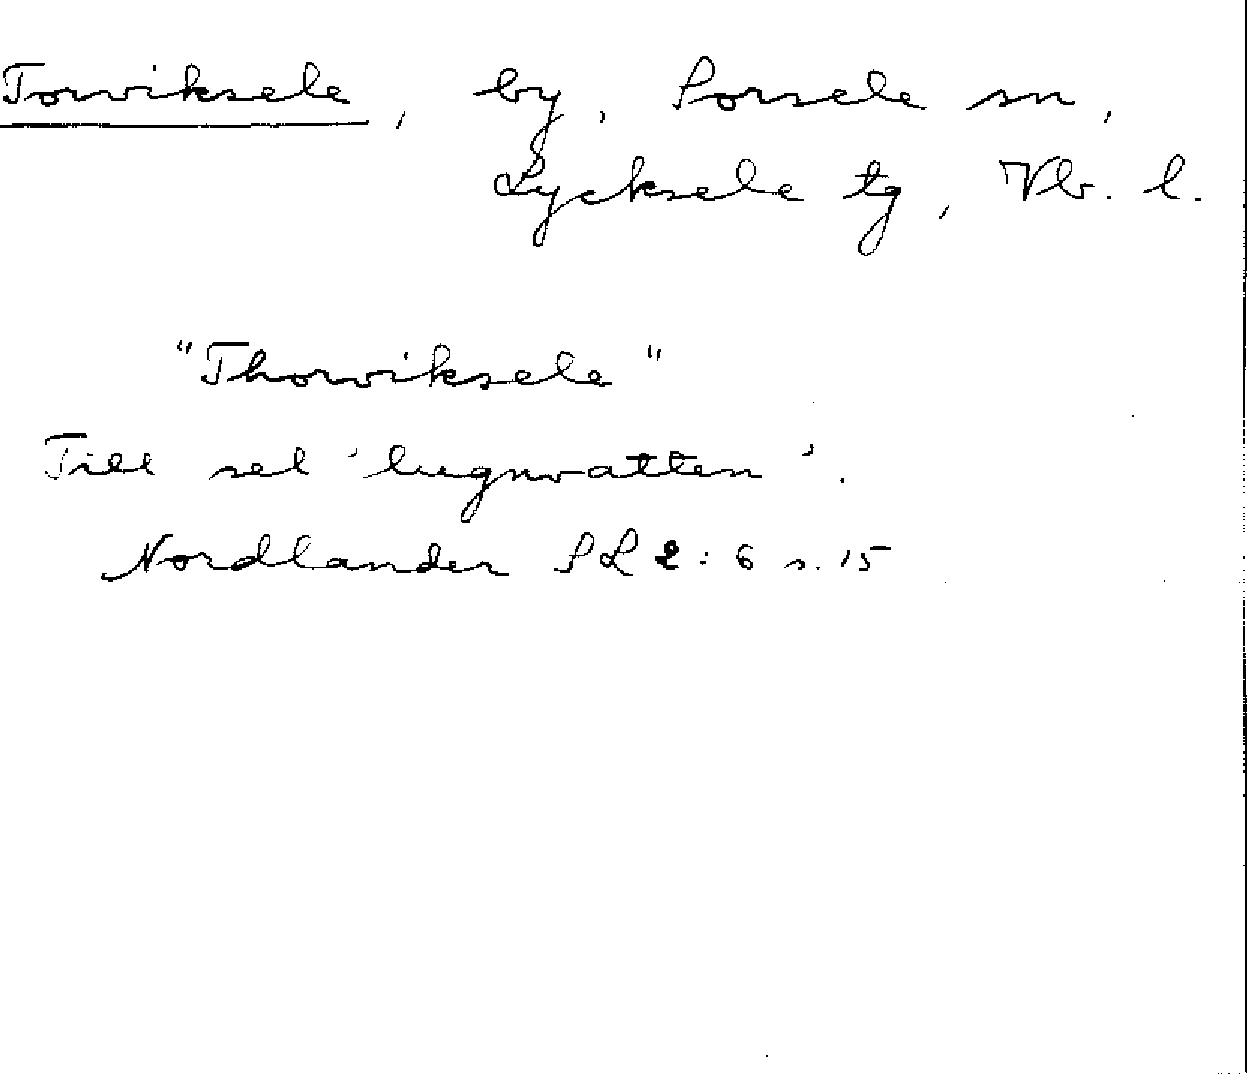 Torviksele, by, Sorsele sn,
Lycksele tg, Vb. l.
"Thorviksele"
Till sel 'lugnvatten'.
Nordlander SL 2:6 s. 15